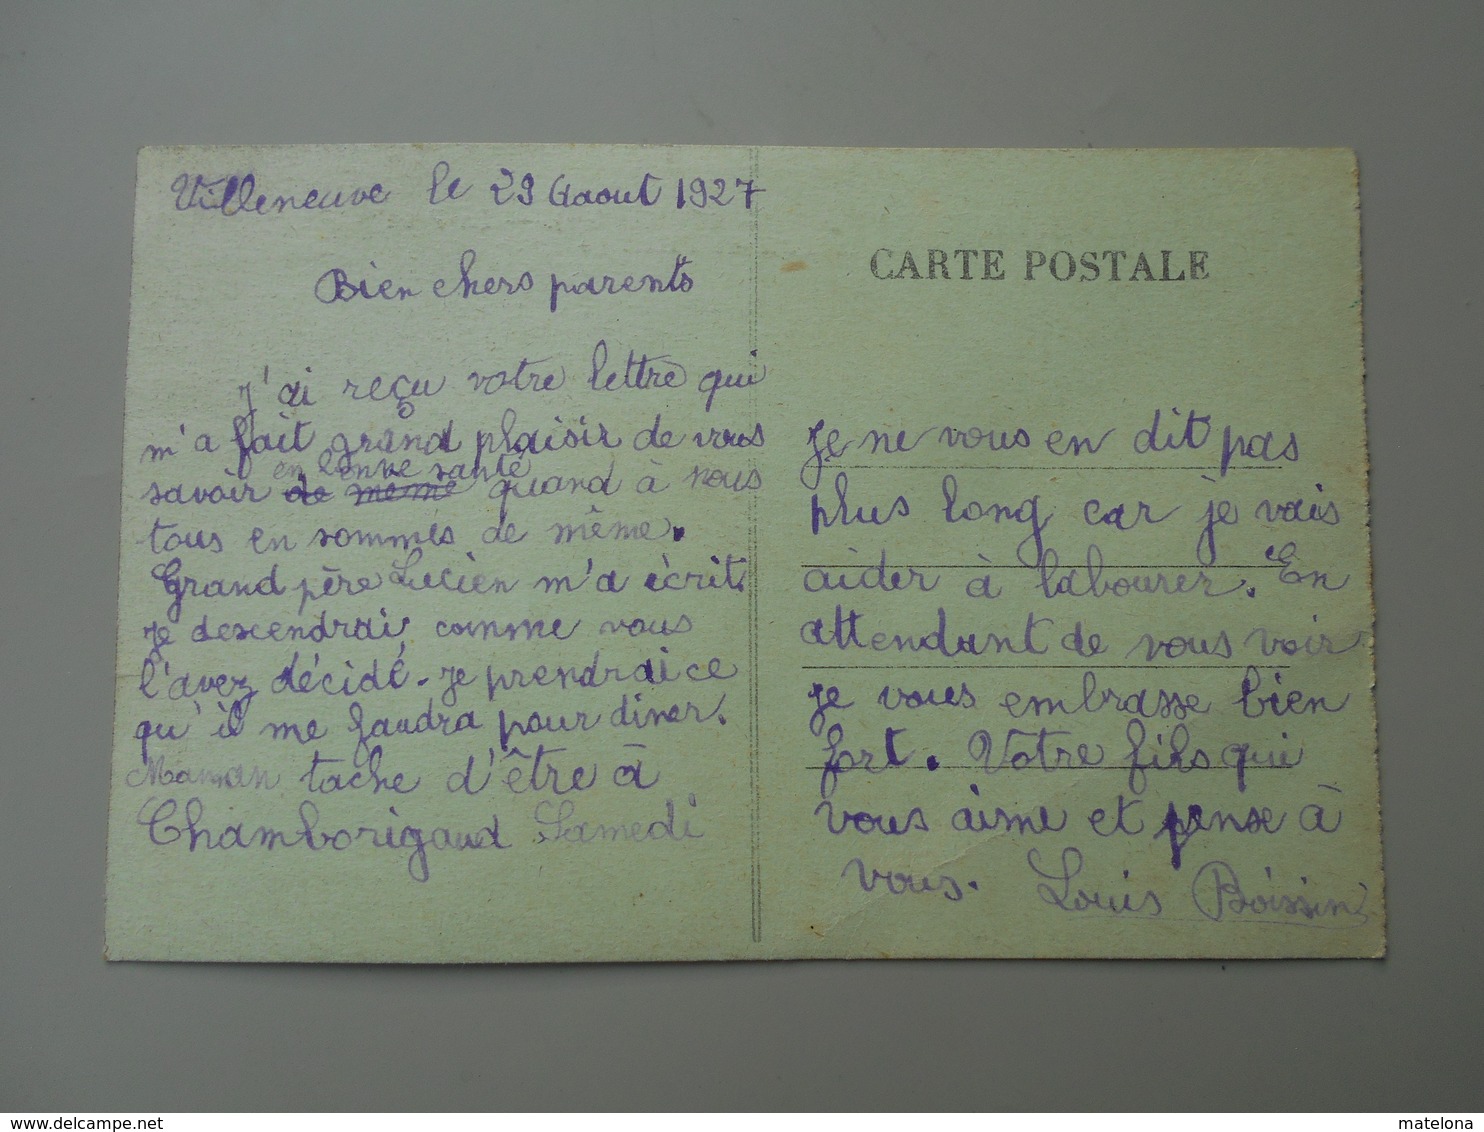 Villeneuve le 29 Gaout 1927
Bien chers parents
J'ai reçu votre lettre qui
m'a fait grand plaisir de vous
en bonne santé
savoir de meme quand à nous
tous en sommes de même.
Grand père Lucien m'a écrit.
Je descendrai comme vous
l'avez décidé. Je prendrai ce
qu'il me faudra pour diner.
Maman tache d'être à
Chamborigaud Samedi
CARTE POSTALE
Je ne vous en dit pas
plus long car je vais
aider à labourer. En
attendant de vous voir
je vous embrasse bien
fort. Votre fils qui
vous aime et pense à
vous. Louis Boissin
delcampe.net
matelona